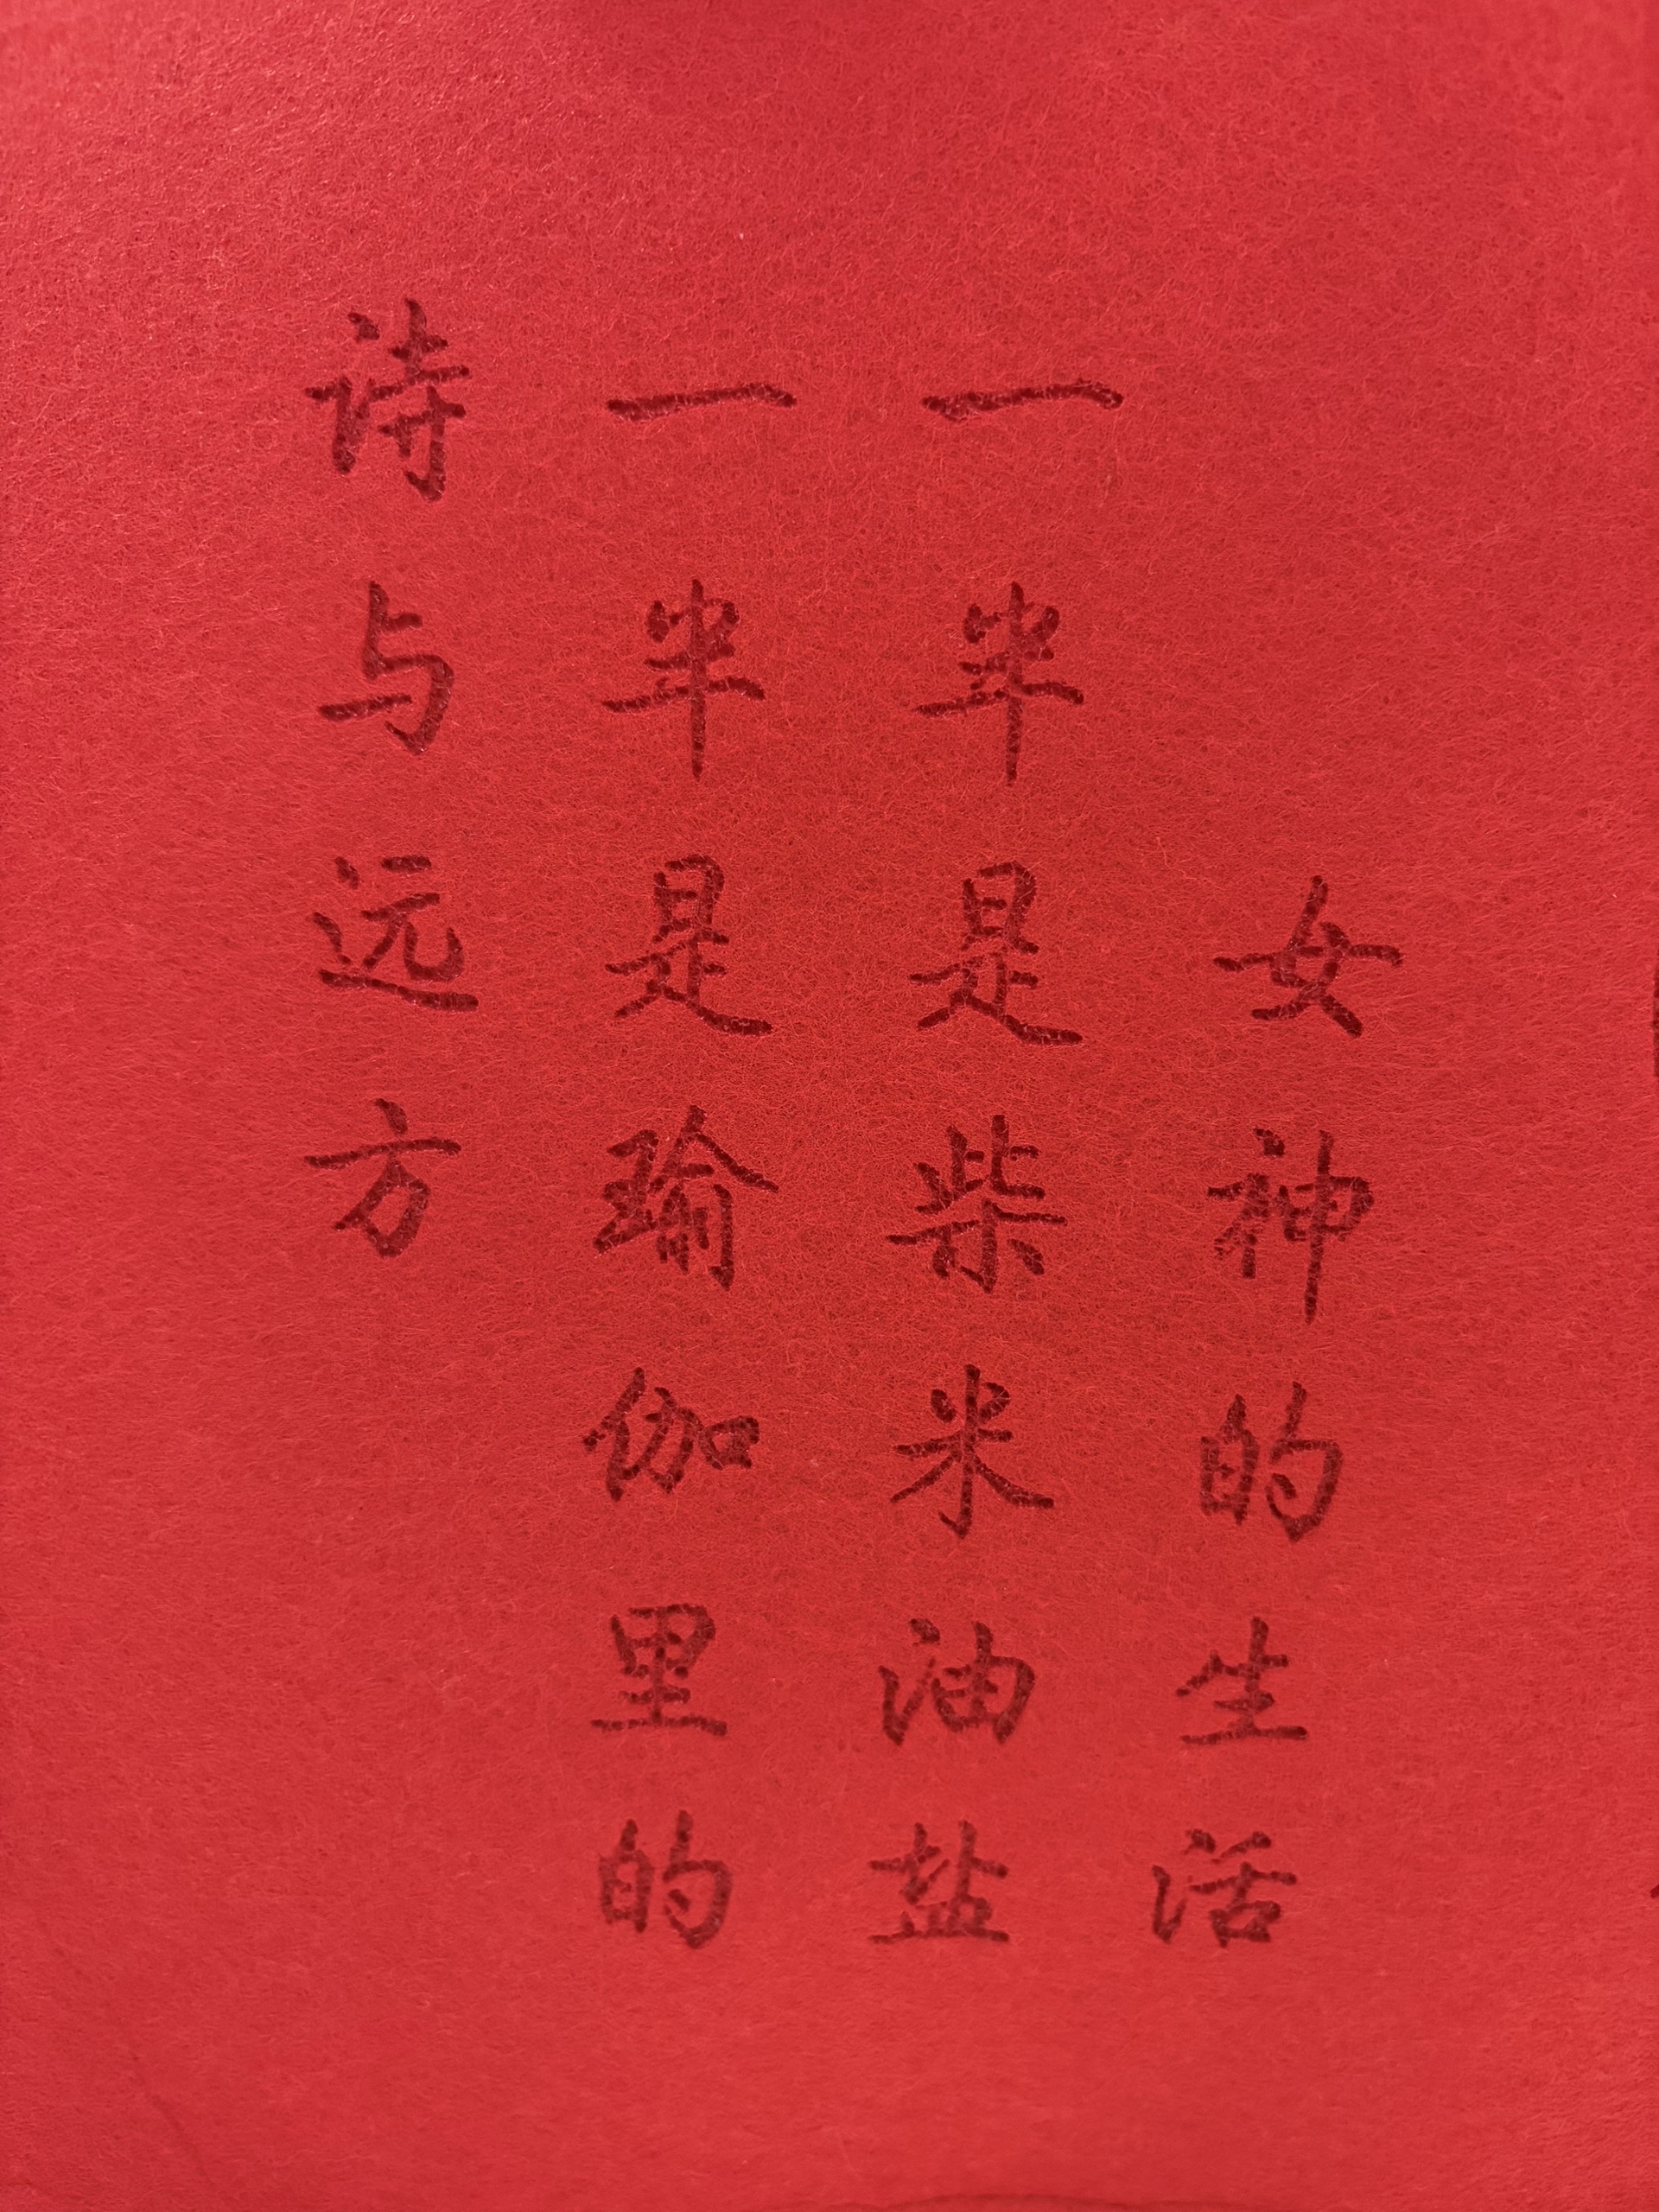 女神的生活
一半是柴米油盐
一半是瑜伽里的
诗与远方